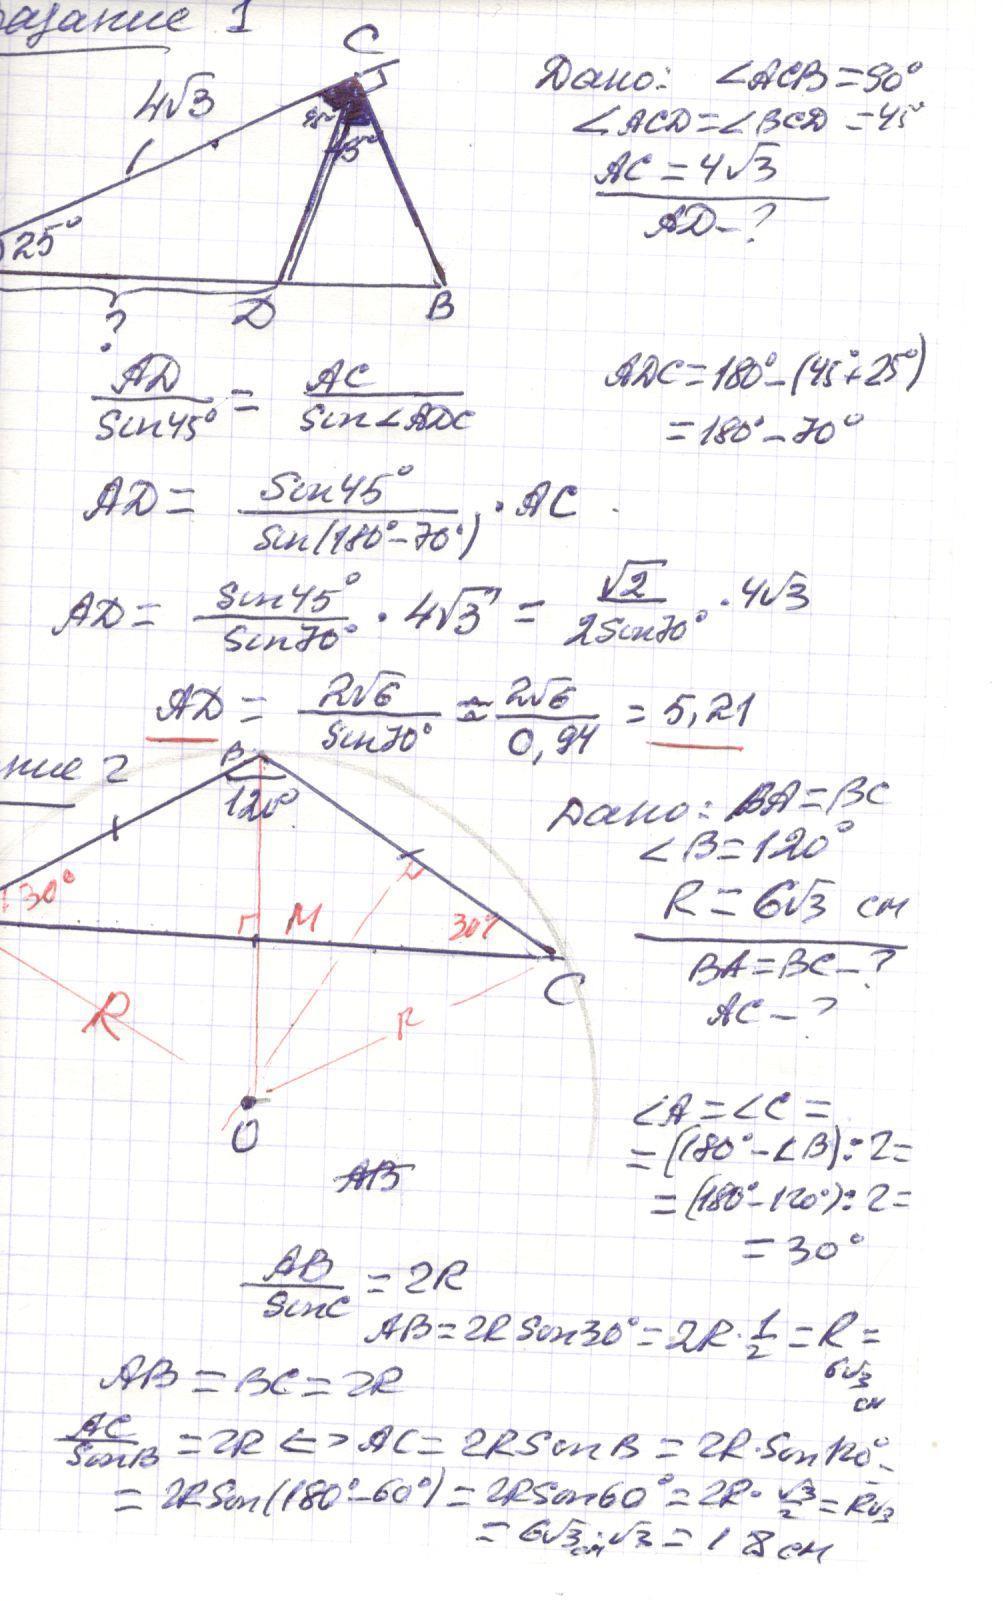 задание 1
C
4√3
45°
45°
25°
?
D
B
Дано: ∠ACB=90°
∠ACD=∠BCD=45°
AC=4√3
AD-?
AD/Sin45° = AC/Sin∠ADC
ADC=180°-(45°+25°)
=180°-70°
AD= Sin45°/Sin(180°-70°) · AC
AD= Sin45°/Sin70° · 4√3 = √2/2Sin70° · 4√3
AD = 2√6/Sin70° ≈ 2√6/0,94 = 5,21
ние 2
B
120°
30°
M
30°
C
R
R
O
Дано: BA=BC
∠B=120°
R=6√3 см
BA=BC-?
AC-?
∠A=∠C=
=(180°-∠B):2=
=(180°-120°):2=
=30°
AB
AB/SinC = 2R
AB=2RSin30°=2R·1/2=R=
6√3
см
AB=BC=2R
AC/SinB = 2R <=> AC=2RSinB=2R·Sin120°=
=2RSin(180°-60°)=2RSin60°=2R·√3/2=R√3
=6√3см·√3=18см